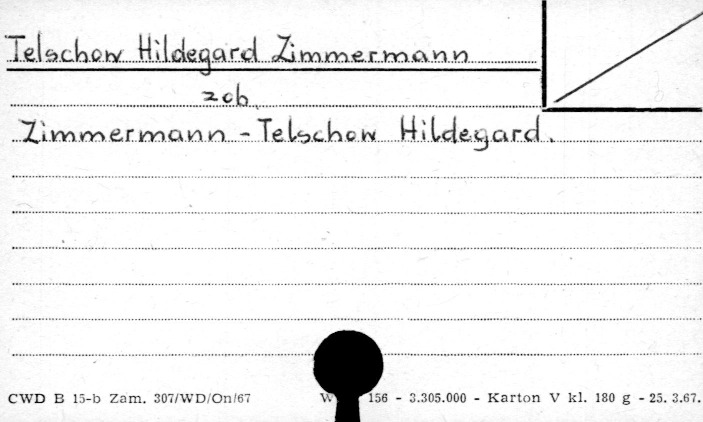 Telschow Hildegard Zimmermann
zob.
Zimmermann - Telschow Hildegard.
CWD B 15-b Zam. 307/WD/On/67 W 156 - 3.305.000 - Karton V kl. 180 g - 25. 3.67.